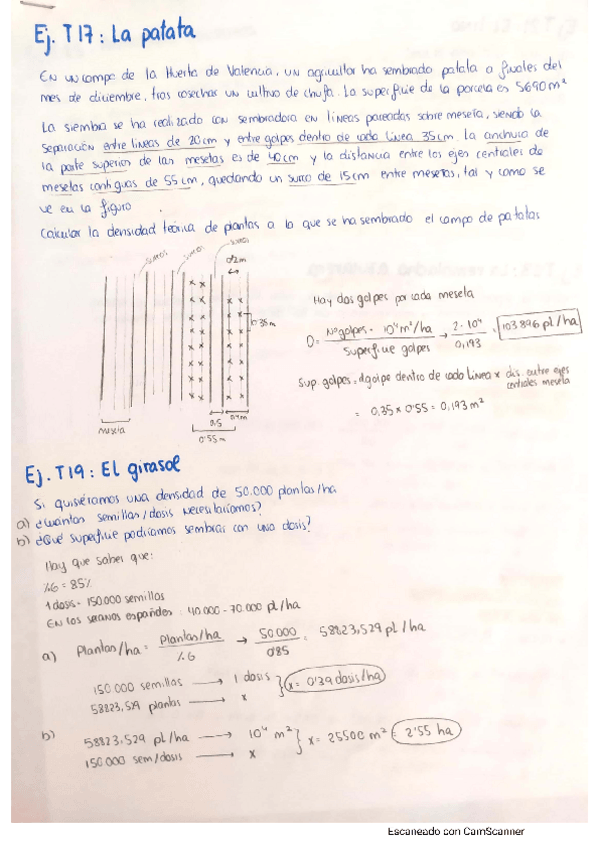 Ej. T17: La patata
En un campo de la Huerta de Valencia, un agricultor ha sembrado patata a finales del
mes de diciembre, tras cosechar un cultivo de chufa. La superficie de la parcela es 5690 m²
La siembra se ha realizado con sembradora en líneas pareadas sobre meseta, siendo la
separación entre líneas de 20cm y entre golpes dentro de cada línea 35cm. La anchura de
la parte superior de las mesetas es de 40cm y la distancia entre los ejes centrales de
mesetas contiguas de 55cm, quedando un surco de 15cm entre mesetas, tal y como se
ve en la figura
Calcular la densidad teórica de plantas a la que se ha sembrado el campo de patatas
surco
surco
surco
0'2m
0.35m
meseta
0.5
0.4m
0'55m
Hay dos golpes por cada meseta
D= Nº golpes · 10⁴ m²/ha / Superficie golpes → 2·10⁴ / 0,193 = 103896 pl/ha
Sup. golpes = d golpe dentro de cada línea x dis. entre ejes
centrales meseta
= 0,35 x 0'55 = 0,193 m²
Ej. T19: El girasol
Si quisiéramos una densidad de 50.000 plantas/ha
a) ¿Cuántas semillas/dosis necesitaríamos?
b) ¿Qué superficie podríamos sembrar con una dosis?
Hay que saber que:
%G = 85%
1 dosis = 150.000 semillas
En los secanos españoles: 40.000 - 70.000 pl/ha
a) Plantas/ha = Plantas/ha / %G → 50.000 / 0'85 = 58823,529 pl/ha
150.000 semillas → 1 dosis } x = 0'39 dosis/ha
58823,529 plantas → x
b) 58823,529 pl/ha → 10⁴ m² } x = 25500 m² = 2'55 ha
150.000 sem/dosis → x
Escaneado con CamScanner